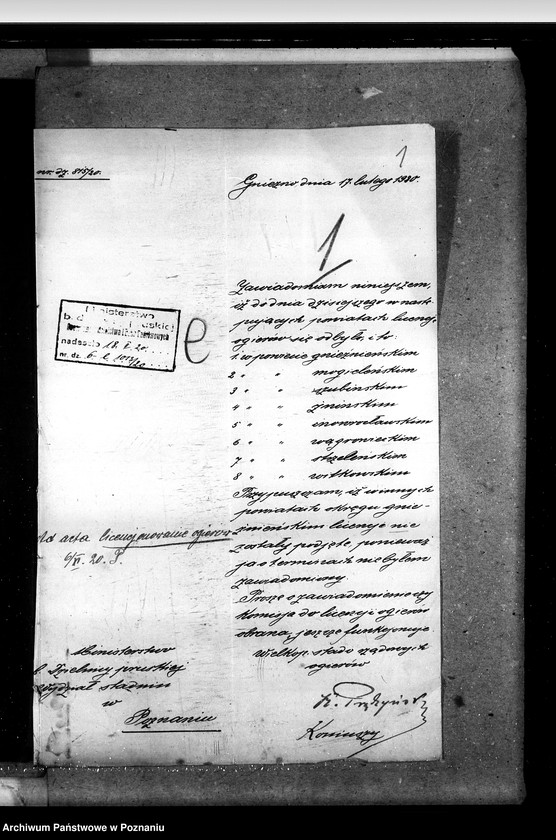 1
nr. dz. 815/20.
Gniezno dnia 17. lutego 1920.
1
Zawiadamiam niniejszem,
iż do dnia dzisiejszego w nastę-
pujących powiatach licencje
ogierów się odbyły, i to:
1. w powiecie gnieźnieńskim
2 " " mogileńskim
3 " " szubińskim
4 " " żnińskim
5 " " inowrocławskim
6 " " wągrowieckim
7 " " strzeleńskim
8 " " witkowskim
Przypuszczam, iż w innych
powiatach okręgu gnie-
źnieńskim licencje nie
zostały podjęte, ponieważ
ja o terminach nie byłem
zawiadomiony.
Proszę o zawiadomienie czy
Komisja do licencji ogierów
obrana, jeszcze funkcjonuje
Wielkop. stado rządowych
ogierów
Koniuszy
Ministerstwo
nadeszło 18. 2. 20.
nr. dz.
e
Ad acta licencjonowanie ogierów
20.
Ministerstwo
b. Dzielnicy pruskiej
Wydział stadnin
w
Poznaniu
Archiwum Państwowe w Poznaniu